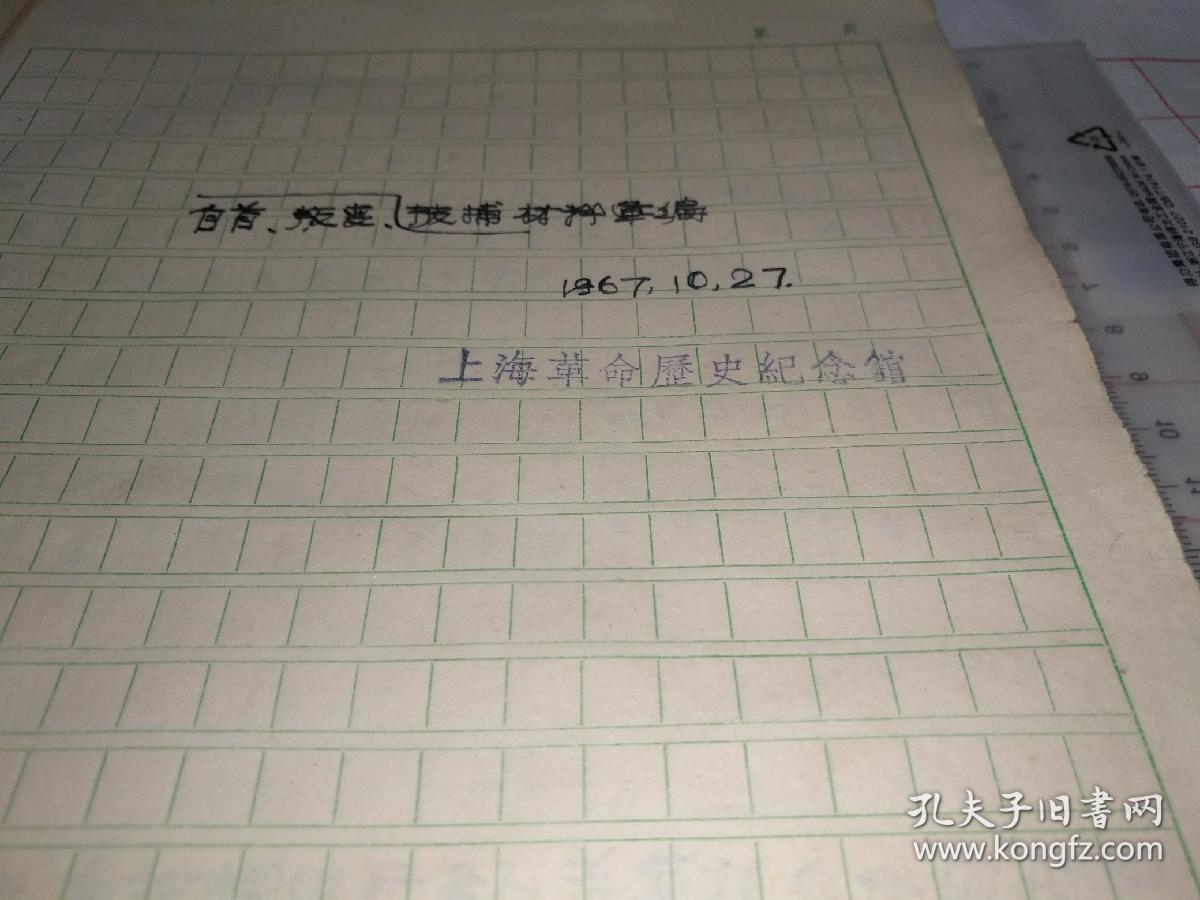 第 页
自首、叛变、被捕材料草编
1967.10.27.
上海革命歷史紀念館
6
7
8
9
10
11
孔夫子旧书网
www.kongfz.com